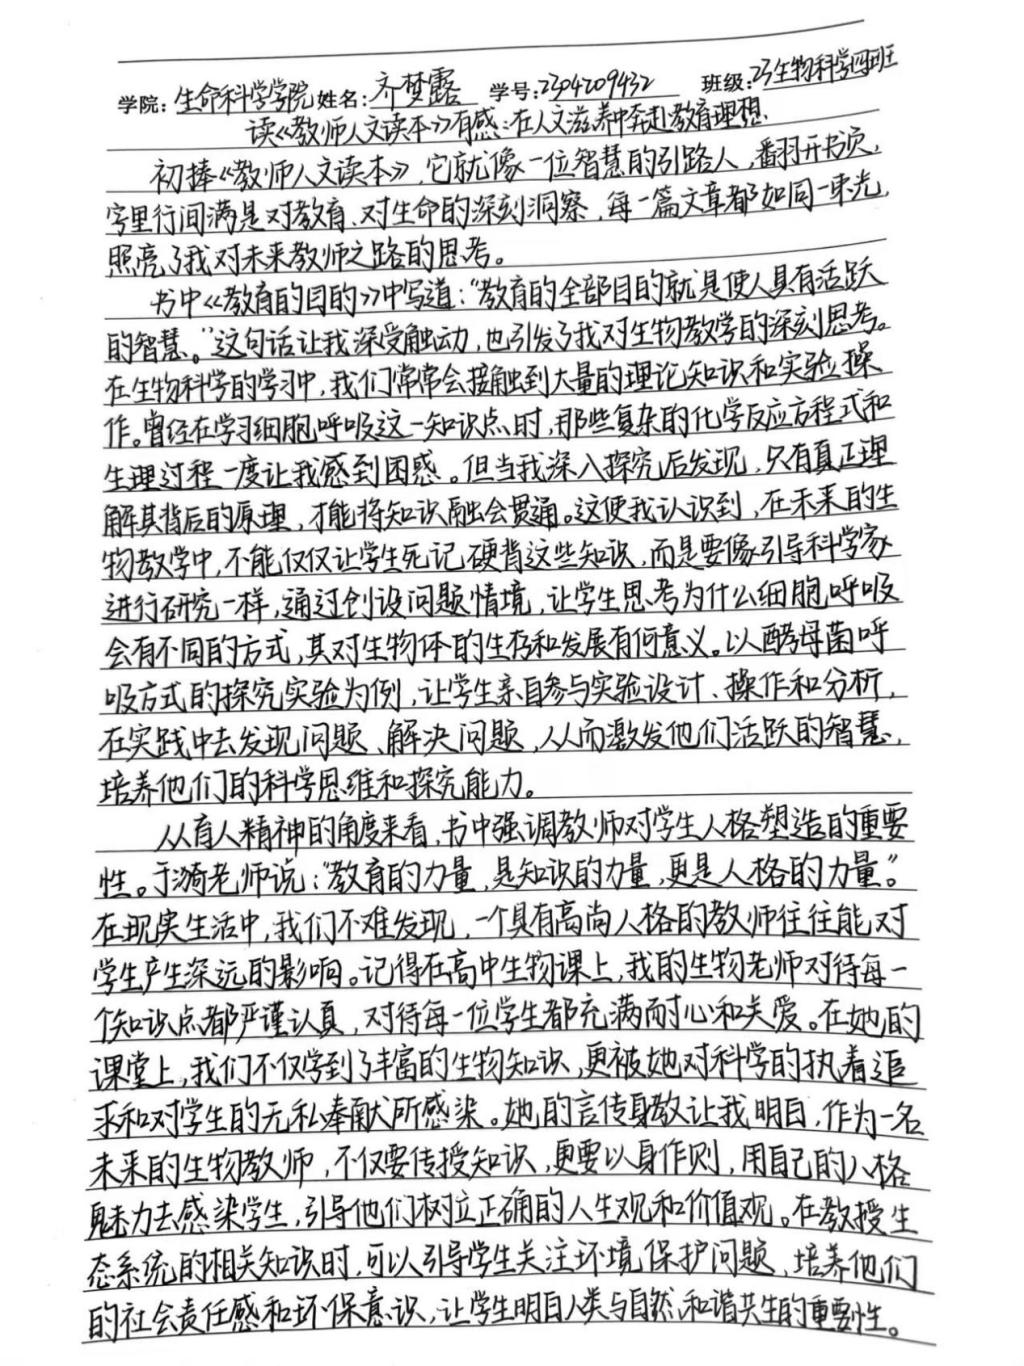 学院:生命科学学院 姓名:齐梦露 学号:2304209432 班级:23生物科学四班
读《教师人文读本》有感:在人文滋养中奔赴教育理想
初捧《教师人文读本》,它就像一位智慧的引路人,翻开书页,
字里行间满是对教育、对生命的深刻洞察,每一篇文章都如同一束光,
照亮了我对未来教师之路的思考。
书中《教育的目的》中写道:“教育的全部目的就是使人具有活跃
的智慧。”这句话让我深受触动,也引发了我对生物教学的深刻思考。
在生物科学的学习中,我们常常会接触到大量的理论知识和实验操
作。曾经在学习细胞呼吸这一知识点时,那些复杂的化学反应方程式和
生理过程一度让我感到困惑。但当我深入探究后发现,只有真正理
解其背后的原理,才能将知识融会贯通。这使我认识到,在未来的生
物教学中,不能仅仅让学生死记硬背这些知识,而是要像引导科学家
进行研究一样,通过创设问题情境,让学生思考为什么细胞呼吸
会有不同的方式,其对生物体的生存和发展有何意义。以酵母菌呼
吸方式的探究实验为例,让学生亲自参与实验设计、操作和分析,
在实践中去发现问题、解决问题,从而激发他们活跃的智慧,
培养他们的科学思维和探究能力。
从育人精神的角度来看,书中强调教师对学生人格塑造的重要
性。于漪老师说:“教育的力量,是知识的力量,更是人格的力量。”
在现实生活中,我们不难发现,一个具有高尚人格的教师往往能对
学生产生深远的影响。记得在高中生物课上,我的生物老师对待每一
个知识点都严谨认真,对待每一位学生都充满耐心和关爱。在她的
课堂上,我们不仅学到了丰富的生物知识,更被她对科学的执着追
求和对学生的无私奉献所感染。她的言传身教让我明白,作为一名
未来的生物教师,不仅要传授知识,更要以身作则,用自己的人格
魅力去感染学生,引导他们树立正确的人生观和价值观。在教授生
态系统的相关知识时,可以引导学生关注环境保护问题,培养他们
的社会责任感和环保意识,让学生明白人类与自然和谐共生的重要性。